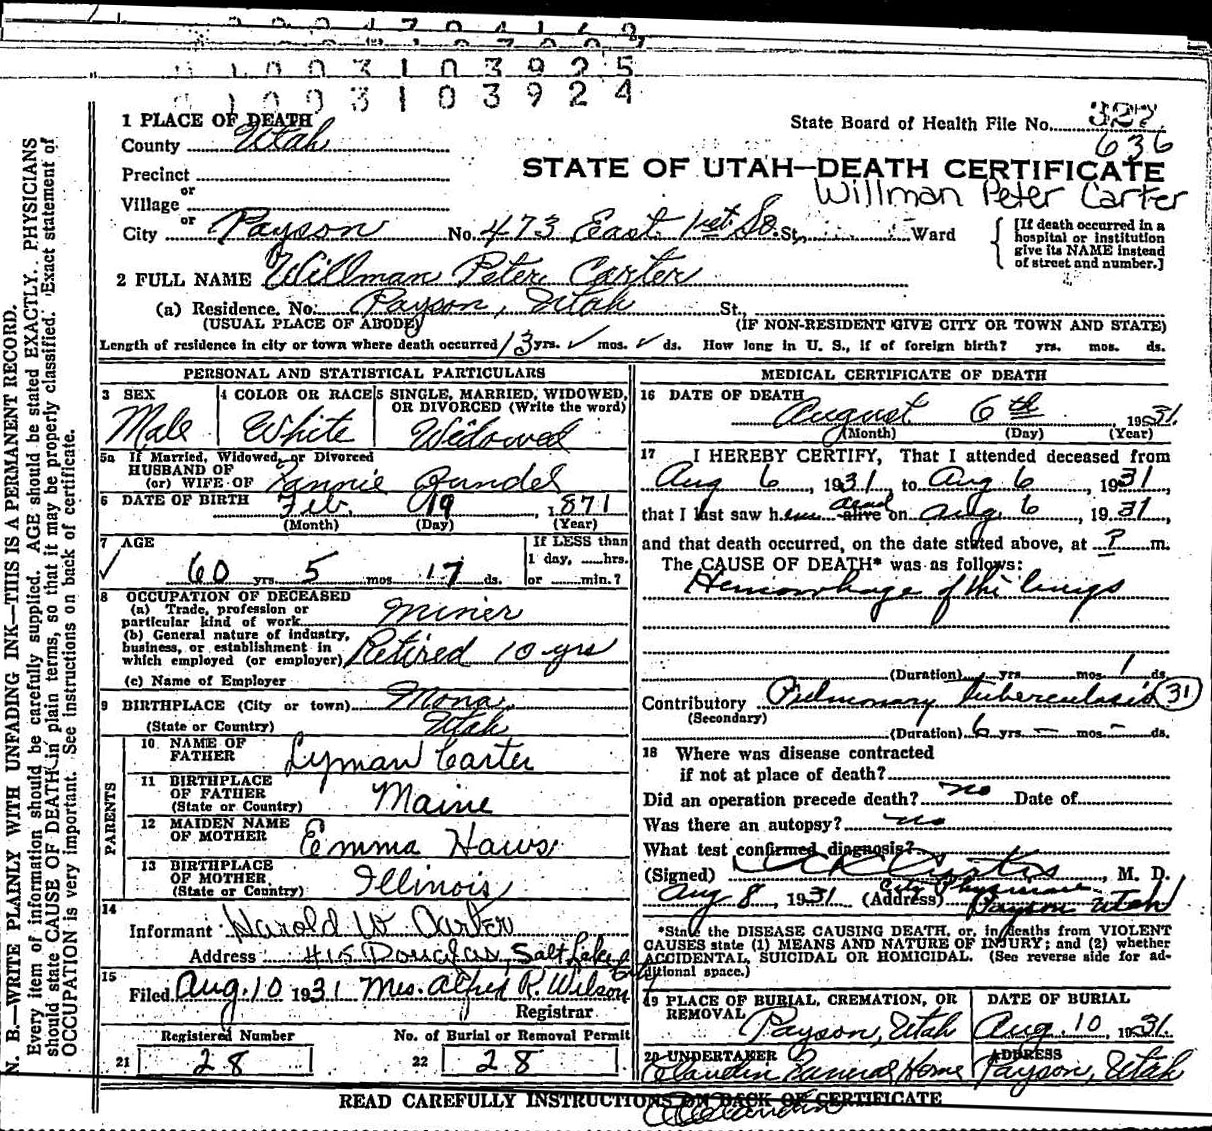 0 1 0 0 3 1 0 3 9 2 5
0 1 0 0 3 1 0 3 9 2 4
1 PLACE OF DEATH
County Utah
State Board of Health File No. 327
636
STATE OF UTAH—DEATH CERTIFICATE
Willman Peter Carter
Precinct
or
Village
or
City Payson No. 473 East 1st So. St., Ward
[If death occurred in a hospital or institution give its NAME instead of street and number.]
2 FULL NAME Willman Peter Carter
(a) Residence. No. Payson, Utah St.,
(USUAL PLACE OF ABODE) (IF NON-RESIDENT GIVE CITY OR TOWN AND STATE)
Length of residence in city or town where death occurred 13 yrs. ✓ mos. ✓ ds. How long in U. S., if of foreign birth? yrs. mos. ds.
PERSONAL AND STATISTICAL PARTICULARS
3 SEX
Male
4 COLOR OR RACE
White
5 SINGLE, MARRIED, WIDOWED,
OR DIVORCED (Write the word)
Widowed
5a If Married, Widowed, or Divorced
HUSBAND OF
(or) WIFE OF Fannie
6 DATE OF BIRTH Feb. 19, 1871
(Month) (Day) (Year)
7 AGE
✓ 60 yrs. 5 mos. 17 ds.
If LESS than
1 day, hrs.
or min.?
8 OCCUPATION OF DECEASED
(a) Trade, profession or
particular kind of work Miner
(b) General nature of industry,
business, or establishment in
which employed (or employer) Retired 10 yrs
(c) Name of Employer
9 BIRTHPLACE (City or town) Mona,
(State or Country) Utah
PARENTS
10 NAME OF
FATHER Lyman Carter
11 BIRTHPLACE
OF FATHER
(State or Country) Maine
12 MAIDEN NAME
OF MOTHER Emma Haws
13 BIRTHPLACE
OF MOTHER
(State or Country) Illinois
14
Informant Harold W Carter
Address 415 Douglas, Salt Lake City
15
Filed Aug. 10 1931 Mrs. Alfred R. Wilson
Registrar
Registered Number
21 28
No. of Burial or Removal Permit
22 28
MEDICAL CERTIFICATE OF DEATH
16 DATE OF DEATH
August 6th 1931
(Month) (Day) (Year)
17 I HEREBY CERTIFY, That I attended deceased from
Aug 6, 1931, to Aug 6, 1931,
that I last saw him dead alive on Aug. 6, 1931,
and that death occurred, on the date stated above, at ? m.
The CAUSE OF DEATH* was as follows:
Hemorrhage of the lungs
(Duration) yrs. mos. 1 ds.
Contributory Pulmonary Tuberculosis 31
(Secondary)
(Duration) 6 yrs. – mos. – ds.
18 Where was disease contracted
if not at place of death?
Did an operation precede death? no Date of
Was there an autopsy? no
What test confirmed diagnosis?
(Signed) , M. D.
Aug 8, 1931 (Address) City Physician
Payson Utah
*State the DISEASE CAUSING DEATH, or, in deaths from VIOLENT
CAUSES state (1) MEANS AND NATURE OF INJURY; and (2) whether
ACCIDENTAL, SUICIDAL OR HOMICIDAL. (See reverse side for additional space.)
19 PLACE OF BURIAL, CREMATION, OR
REMOVAL
Payson, Utah
DATE OF BURIAL
Aug. 10, 1931.
20 UNDERTAKER
Claudin Funeral Home
ADDRESS
Payson, Utah
READ CAREFULLY INSTRUCTIONS ON BACK OF CERTIFICATE
N. B.—WRITE PLAINLY WITH UNFADING INK—THIS IS A PERMANENT RECORD.
Every item of information should be carefully supplied. AGE should be stated EXACTLY. PHYSICIANS
should state CAUSE OF DEATH in plain terms, so that it may be properly classified. Exact statement of
OCCUPATION is very important. See instructions on back of certificate.